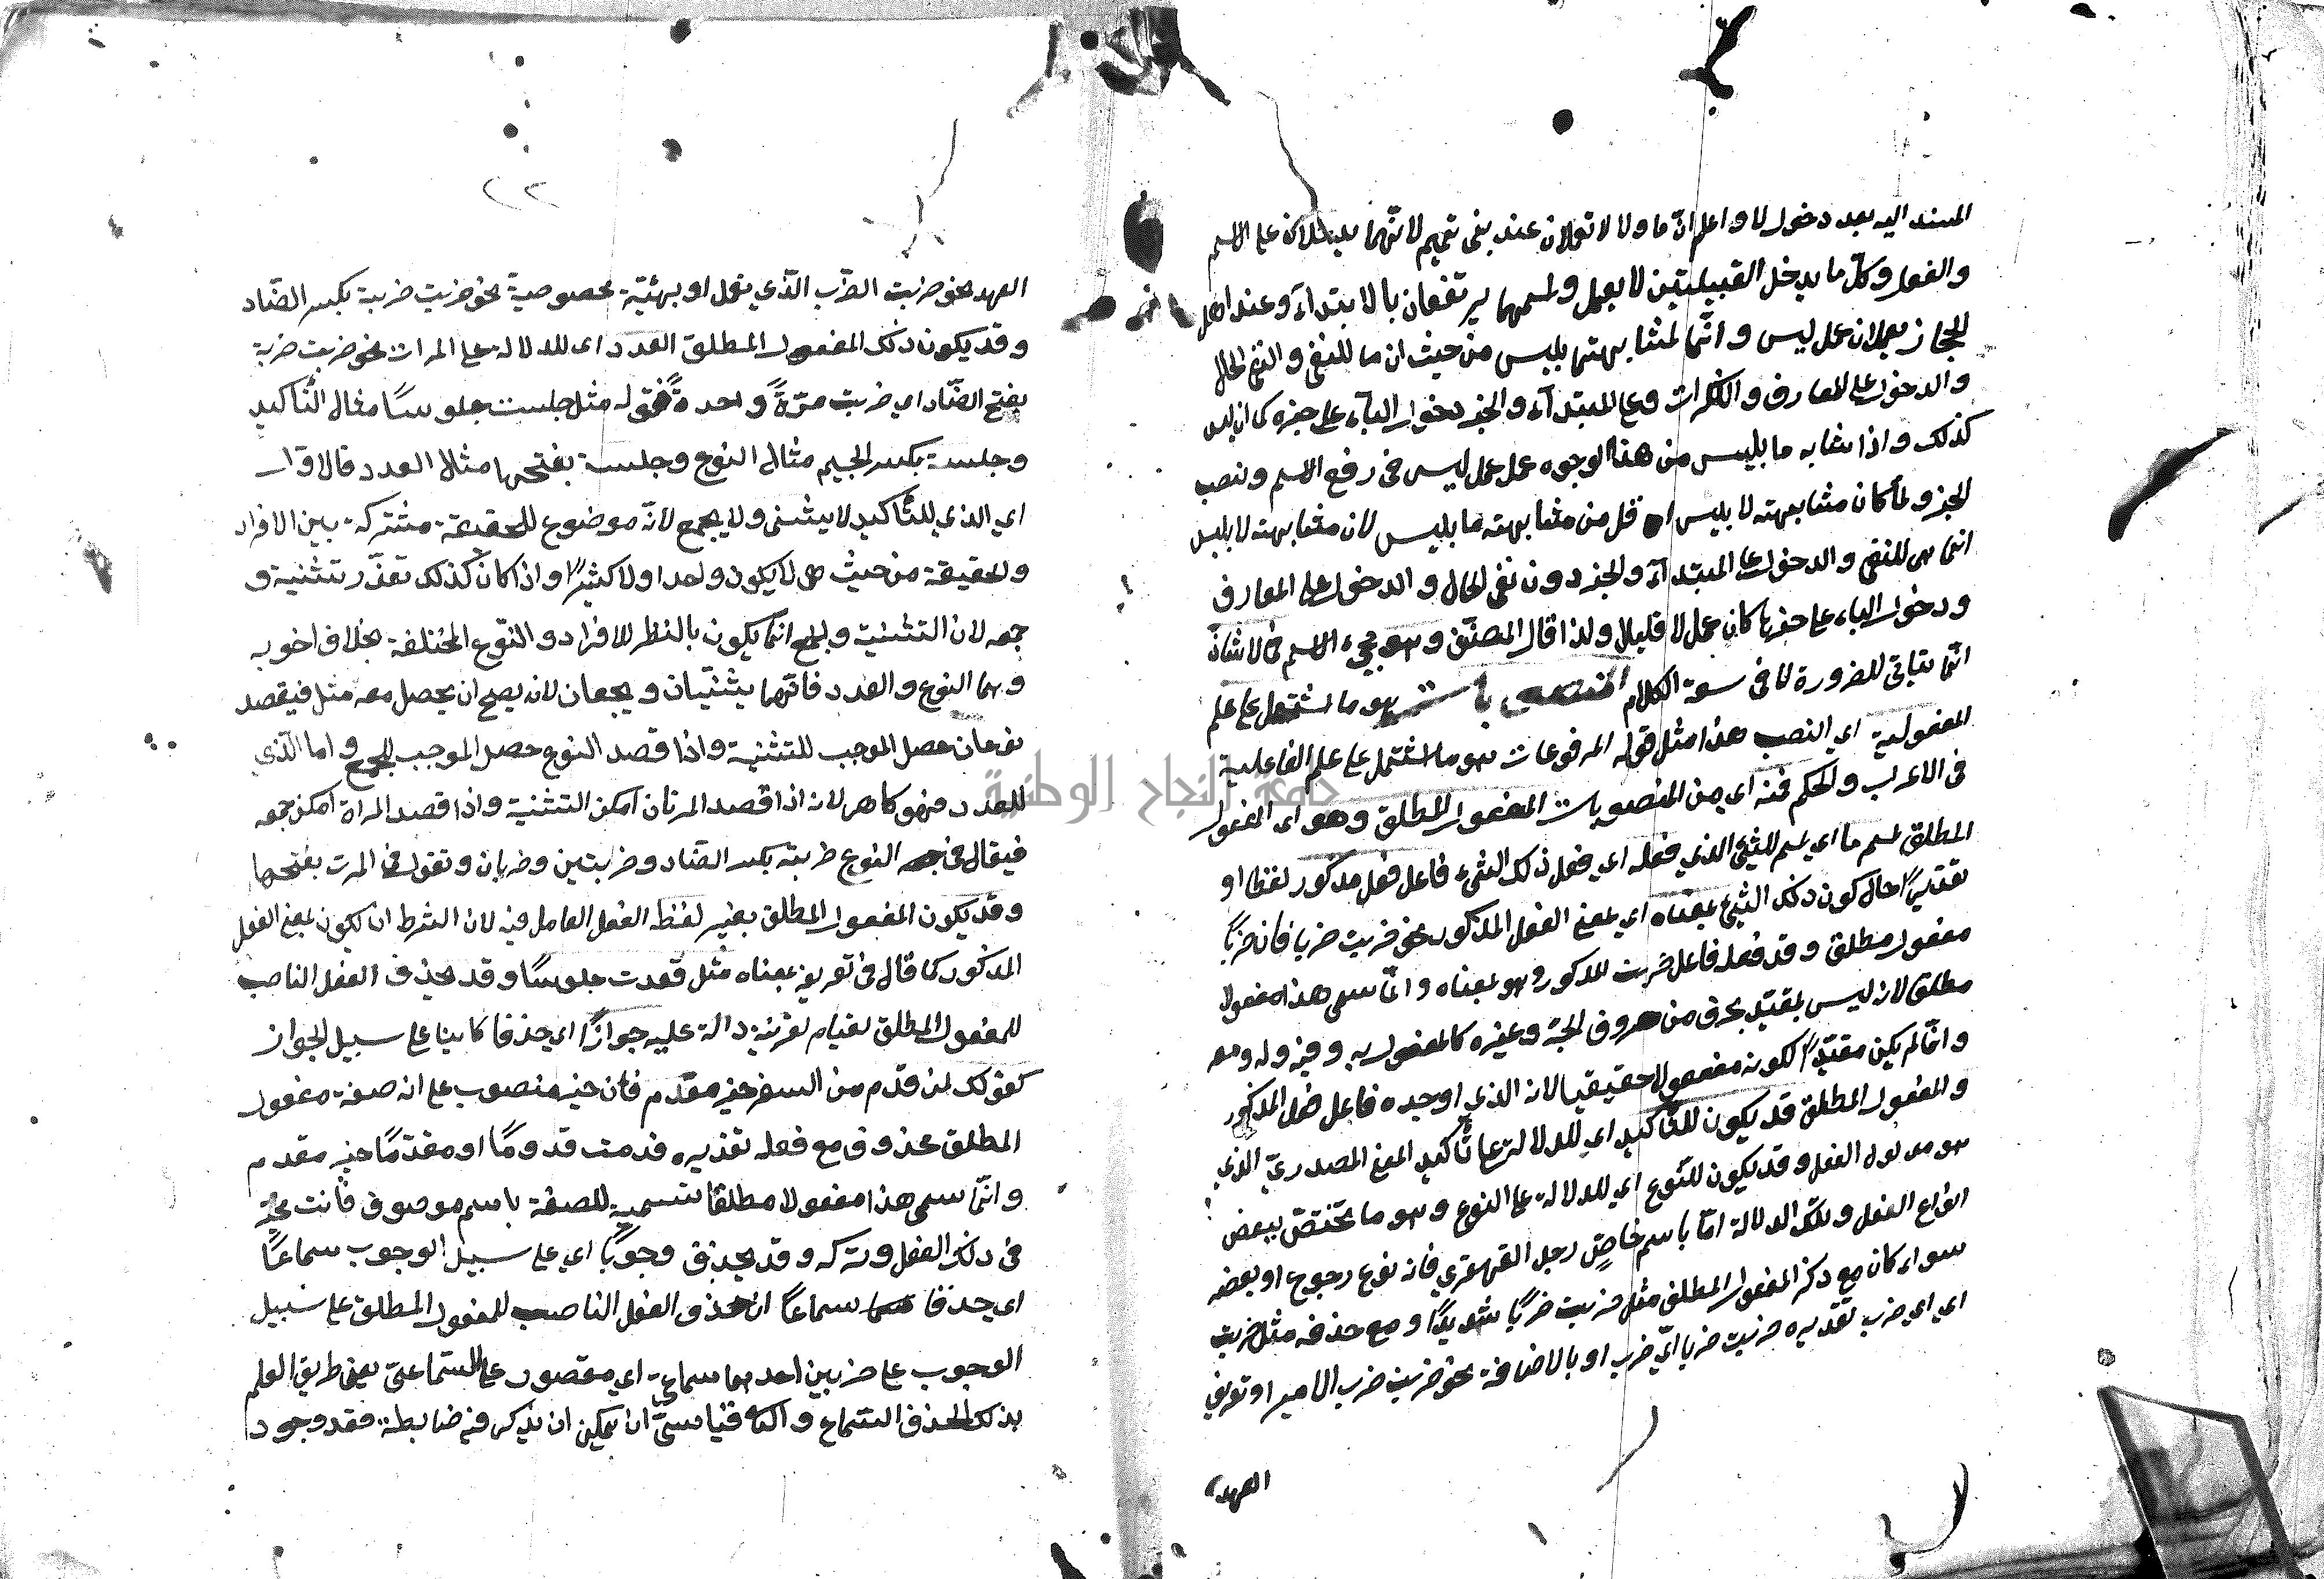 المسند اليه بعد دخول لا واعلم ان ما ولا لا تعملان عند بنى تميم لانهما يدخلان على الاسم
والفعل وكل ما يدخل القبيلتين لا يعمل واسمهما يرتفعان بالابتداء وعند اهل
الحجاز يعملان عمل ليس وانما لمشابهتهما بليس من حيث ان ما للنفى والنفى الحال
والدخول على المعارف والنكرات وعلى المبتدآء والخبر دخول البآء على خبره كما ان ليس
كذلك واذا شابه ما بليس من هذا الوجوه عمل عمل ليس فى رفع الاسم ونصب
الخبر ولما كان مشابهته لا بليس اقل من مشابهته ما بليس لان مشابهته لا بليس
انما هى للنفى والدخول على المبتدآء والخبر دون نفى الحال والدخول على المعارف
ودخول الباء على خبرها كان عمل لا قليلا ولذا قال المصنف وهو مجيء الاسم فى لا شاذ
انما يتاتى للضرورة لا فى سعة الكلام هو ما اشتمل على علم
المفعولية اى النصب هذا مثل قوله المرفوعات هو ما اشتمل على علم الفاعلية
فى الاعراب والحكم فمنه اى من المنصوبات المفعول المطلق وهو اى المفعول
المطلق اسم ما اى اسم للشئ الذي فعله اى فعل ذلك الشيء فاعل فعل مذكور لفظا او
تقديرًا حال كون ذلك الشيء بمعناه اى بمعنى الفعل المذكور نحو ضربت ضربا فان ضربًا
مفعول مطلق وقد فعله فاعل ضربت المذكور وهو بمعناه وانما سمى هذا مفعولا
مطلق لانه ليس بمقيد بحرف من حروف الجر وغيره كالمفعول به وفيه وله ومعه
وانما لم يكن مقيدًا لكونه مفعولا حقيقيا لانه الذي اوجده فاعل فعل المذكور
والمفعول المطلق قد يكون للتأكيد اى للدلالة على تأكيد المعنى المصدري الذي
هو مدلول الفعل وقد يكون للنوع اي للدلالة على النوع وهو ما تختص ببعض
انواع الفعل وتلك الدلالة اما باسم خاص رجل القهقرى فانه نوع رجوع او بعضه
سواء كان مع ذكر المفعول المطلق مثل ضربت ضربًا شديدًا ومع حذفه مثل ضربت
اى اى ضرب تقديره ضربت ضربا اىّ ضرب او بالاضافة نحو ضربت ضرب الامير او تعريف
العهد
٢٢
العهد نحو ضربت الضرب الذي يفعل او بهيئة بخصوصية نحو ضربت ضربة بكسر الضاد
وقد يكون ذلك المفعول المطلق العدد اى للدلالة على المرات نحو ضربت ضربة
بفتح الضاد اى ضربت مرةً واحدةً فقوله مثل جلست جلوسًا مثال التأكيد
وجلسة بكسر الجيم مثال النوع وجلسة بفتحها مثال العدد فالاول
اى الذي للتأكيد لا يثنى ولا يجمع لانه موضوع للحقيقة مشتركة بين الافراد
والحقيقة من حيث هى لا يكون واحدا ولا كثيرًا واذا كان كذلك تعذر تثنية و
جمعه لان التثنية والجمع انما يكون بالنظر للافراد والنوع المختلفة بخلاف اخويه
وهما النوع والعدد فانهما يثنيان ويجمعان لانه يصح ان يحصل معه مثل فيقصد
نوعان حصل الموجب للتثنية واذا قصد النوع حصل الموجب للجمع واما الذي
للعدد فهو كاهر لانه اذا قصد المرتان امكن التثنية واذا قصد المراة امكن جمعه
فيقال فى جمع النوع ضربته بكسر الضاد وضربتين وضربان وتقول فى المرت بفتحها
وقد يكون المفعول المطلق بغير لفظه الفعل العامل فيه لان الشرط ان يكون بمعنى الفعل
المذكور كما قال فى تعريفه بمعناه مثل قعدت جلوسًا وقد يحذف الفعل الناصب
للمفعول المطلق لقيام لقرينة دالة عليه جوازًا اى حذفا كاينا على سبيل الجواز
كقولك لمن قدم من السفر خير مقدم فان خير منصوب على انه صفة مفعول
المطلق محذوف مع فعله تقديره قدمت قدومًا او مقدمًا خير مقدم
وانما سمى هذا مفعولا مطلقا تسمية للصفة باسم موصوف فانت مخير
فى ذلك الفعل وتركه وقد يحذف وجوبًا اى على سبيل الوجوب سماعًا
اى حذفا سماعًا ان حذف الفعل الناصب للمفعول المطلق على سبيل
الوجوب على ضربين احدهما سماعى اى مقصور على السماعى يعنى طريق العلم
بذلك الحذف السماع والثانى قياسى ان يمكن ان يذكر فيه ضابطة فقد وجود
جامعة النجاح الوطنية